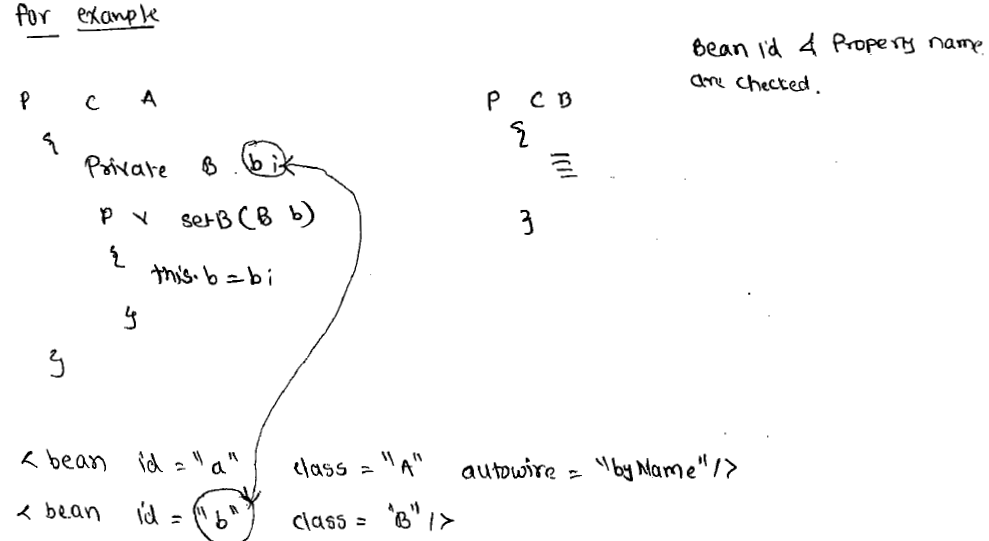 for example
Bean id & Property name
are checked.
P C A
{
Private B b;
P V setB(B b)
{
this.b = b;
}
}
P C B
{
}
< bean id = "a" class = "A" autowire = "byName" />
< bean id = "b" class = "B" />